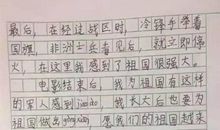 最后，在经过战区时，冷锋手举着
国旗，非洲士兵看见后，就立即停
火，在这里我感到了祖国很强大。
电影结束后，我为祖国有这样
的军人感到jiāoào，我长大后也要为
祖国做出gòngxiàn，愿我们的祖国越来